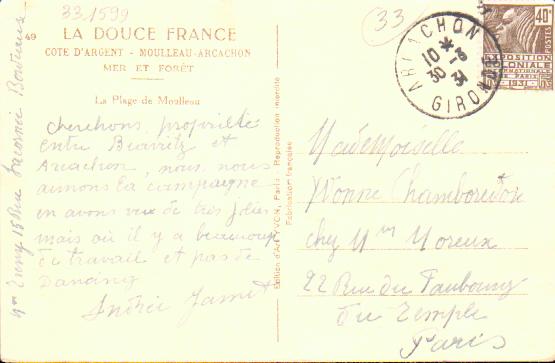 33.1599
33
49 LA DOUCE FRANCE
COTE D'ARGENT - MOULLEAU-ARCACHON
MER ET FORÊT
La Plage de Moulleau
cherchons propriété
entre Biarritz et
Arcachon, nous nous
aimons la campagne
en avons vu de très jolies
mais où il y a beaucoup
de travail et pas de
Dancing
Andrée
Edition d'Art YVON, Paris Reproduction interdite
Fabrication française
ARCACHON
10 *
30 31
GIRONDE
40c
POSTES
EXPOSITION
COLONIALE
INTERNATIONALE
PARIS 1931
Mademoiselle
Yvonne Chamboredon
chez Mr Moreux
22 Rue du Faubourg
du Temple
Paris
15 Rue